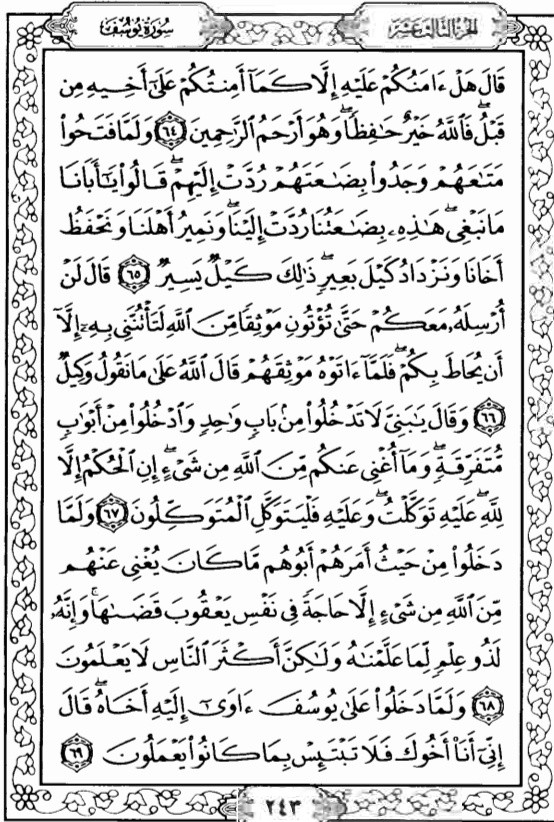 سُورَةُ يُوسُفَ
الجزء الثالث عشر
قَالَ هَلْ ءَامَنُكُمْ عَلَيْهِ إِلَّا كَمَآ أَمِنتُكُمْ عَلَىٰٓ أَخِيهِ مِن
قَبْلُ ۖ فَٱللَّهُ خَيْرٌ حَٰفِظًا ۖ وَهُوَ أَرْحَمُ ٱلرَّٰحِمِينَ ٦٤ وَلَمَّا فَتَحُوا۟
مَتَٰعَهُمْ وَجَدُوا۟ بِضَٰعَتَهُمْ رُدَّتْ إِلَيْهِمْ ۖ قَالُوا۟ يَٰٓأَبَانَا
مَا نَبْغِى ۖ هَٰذِهِۦ بِضَٰعَتُنَا رُدَّتْ إِلَيْنَا ۖ وَنَمِيرُ أَهْلَنَا وَنَحْفَظُ
أَخَانَا وَنَزْدَادُ كَيْلَ بَعِيرٍ ۖ ذَٰلِكَ كَيْلٌ يَسِيرٌ ٦٥ قَالَ لَنْ
أُرْسِلَهُۥ مَعَكُمْ حَتَّىٰ تُؤْتُونِ مَوْثِقًا مِّنَ ٱللَّهِ لَتَأْتُنَّنِى بِهِۦٓ إِلَّآ
أَن يُحَاطَ بِكُمْ ۖ فَلَمَّآ ءَاتَوْهُ مَوْثِقَهُمْ قَالَ ٱللَّهُ عَلَىٰ مَا نَقُولُ وَكِيلٌ
٦٦ وَقَالَ يَٰبَنِىَّ لَا تَدْخُلُوا۟ مِنۢ بَابٍ وَٰحِدٍ وَٱدْخُلُوا۟ مِنْ أَبْوَٰبٍ
مُّتَفَرِّقَةٍ ۖ وَمَآ أُغْنِى عَنكُم مِّنَ ٱللَّهِ مِن شَىْءٍ ۖ إِنِ ٱلْحُكْمُ إِلَّا
لِلَّهِ ۖ عَلَيْهِ تَوَكَّلْتُ ۖ وَعَلَيْهِ فَلْيَتَوَكَّلِ ٱلْمُتَوَكِّلُونَ ٦٧ وَلَمَّا
دَخَلُوا۟ مِنْ حَيْثُ أَمَرَهُمْ أَبُوهُم مَّا كَانَ يُغْنِى عَنْهُم
مِّنَ ٱللَّهِ مِن شَىْءٍ إِلَّا حَاجَةً فِى نَفْسِ يَعْقُوبَ قَضَىٰهَا ۚ وَإِنَّهُۥ
لَذُو عِلْمٍ لِّمَا عَلَّمْنَٰهُ وَلَٰكِنَّ أَكْثَرَ ٱلنَّاسِ لَا يَعْلَمُونَ
٦٨ وَلَمَّا دَخَلُوا۟ عَلَىٰ يُوسُفَ ءَاوَىٰٓ إِلَيْهِ أَخَاهُ ۖ قَالَ
إِنِّىٓ أَنَا۠ أَخُوكَ فَلَا تَبْتَئِسْ بِمَا كَانُوا۟ يَعْمَلُونَ ٦٩
٢٤٣